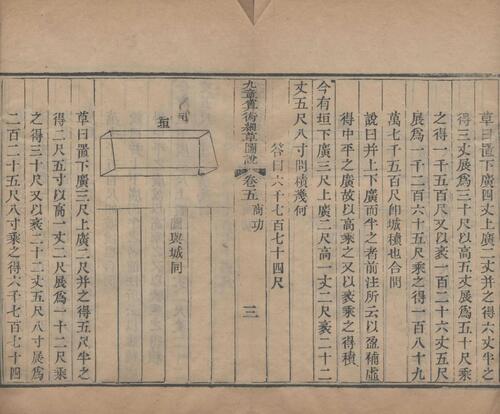 草曰置下廣四丈上廣二丈并之得六丈半之
得三丈展爲三十尺以高五丈展爲五十尺乘
之得一千五百尺又以袤一百二十六丈五尺
展爲一千二百六十五尺乘之得一百八十九
萬七千五百尺卽城積也合問
說曰并上下廣而半之者前注所云以盈補虛
得中平之廣故以高乘之又以袤乘之得積
今有垣下廣三尺上廣二尺高一丈二尺袤二十二
丈五尺八寸問積幾何
答曰六千七百七十四尺
九章算術細草圖說
卷五
商功
三
垣
圖與城同
草曰置下廣三尺上廣二尺并之得五尺半之
得二尺五寸以高一丈二尺展爲一十二尺乘
之得三十尺又以袤二十二丈五尺八寸展爲
二百二十五尺八寸乘之得六千七百七十四